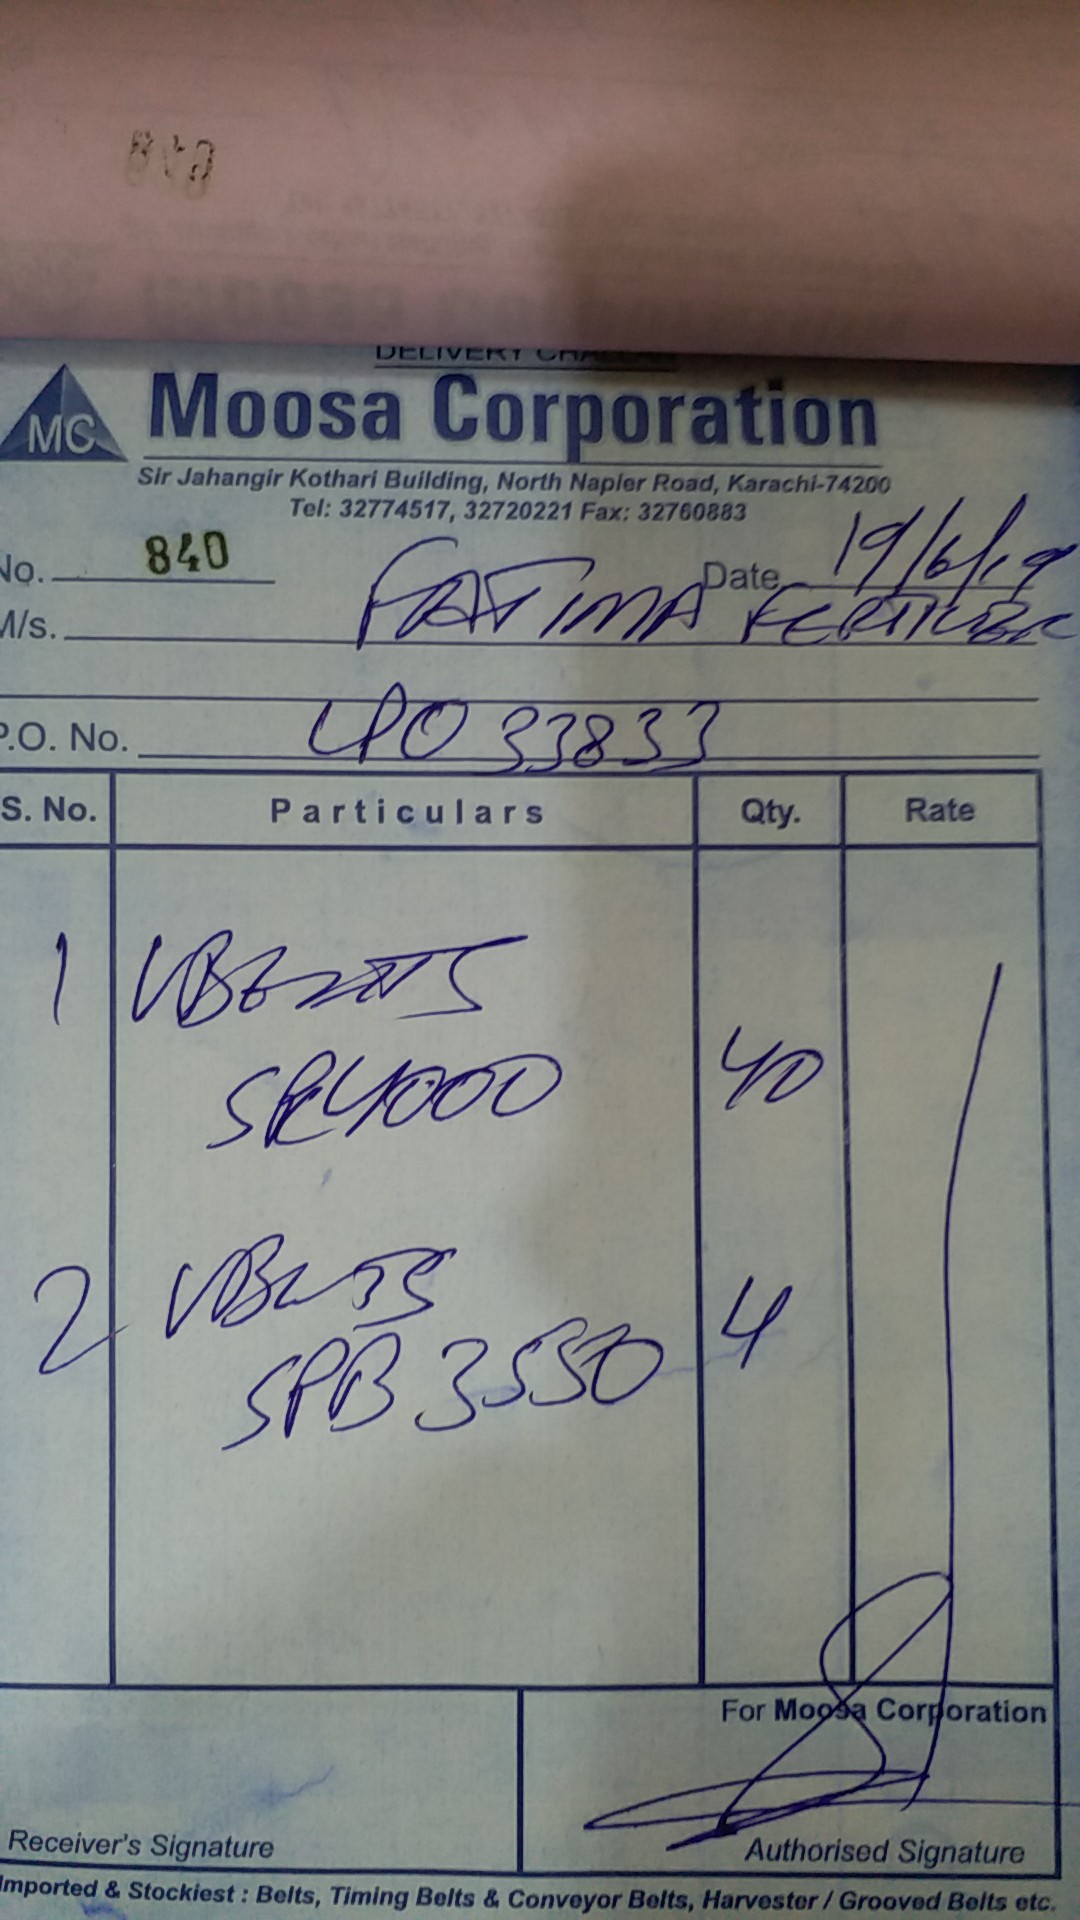 DELIVERY CHALLAN
MC
Moosa Corporation
Sir Jahangir Kothari Building, North Napier Road, Karachi-74200
Tel: 32774517, 32720221 Fax: 32760883
No. 840 Date 19/6/19
M/s. FATIMA FERTILIZER
P.O. No. LPO 33833
S. No. Particulars Qty. Rate
1 VBELTS
SPC4000 40
2 VBELTS
SPB 3550 4
For Moosa Corporation
Receiver's Signature Authorised Signature
Imported & Stockiest : Belts, Timing Belts & Conveyor Belts, Harvester / Grooved Belts etc.